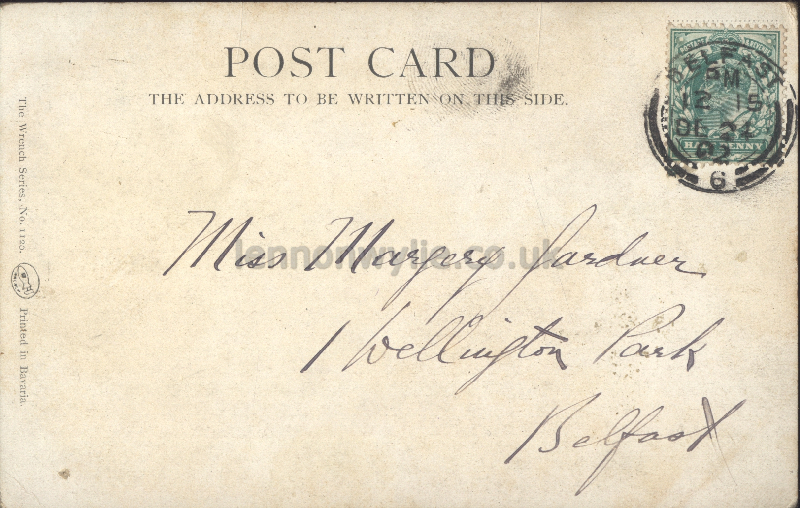 POST CARD
THE ADDRESS TO BE WRITTEN ON THIS SIDE.
BELFAST
PM
12 15
DE 24
6
HALFPENNY
Miss Margery Gardner
1 Wellington Park
Belfast
lennonwylie.co.uk
The Wrench Series, No. 1120.
Printed in Bavaria.